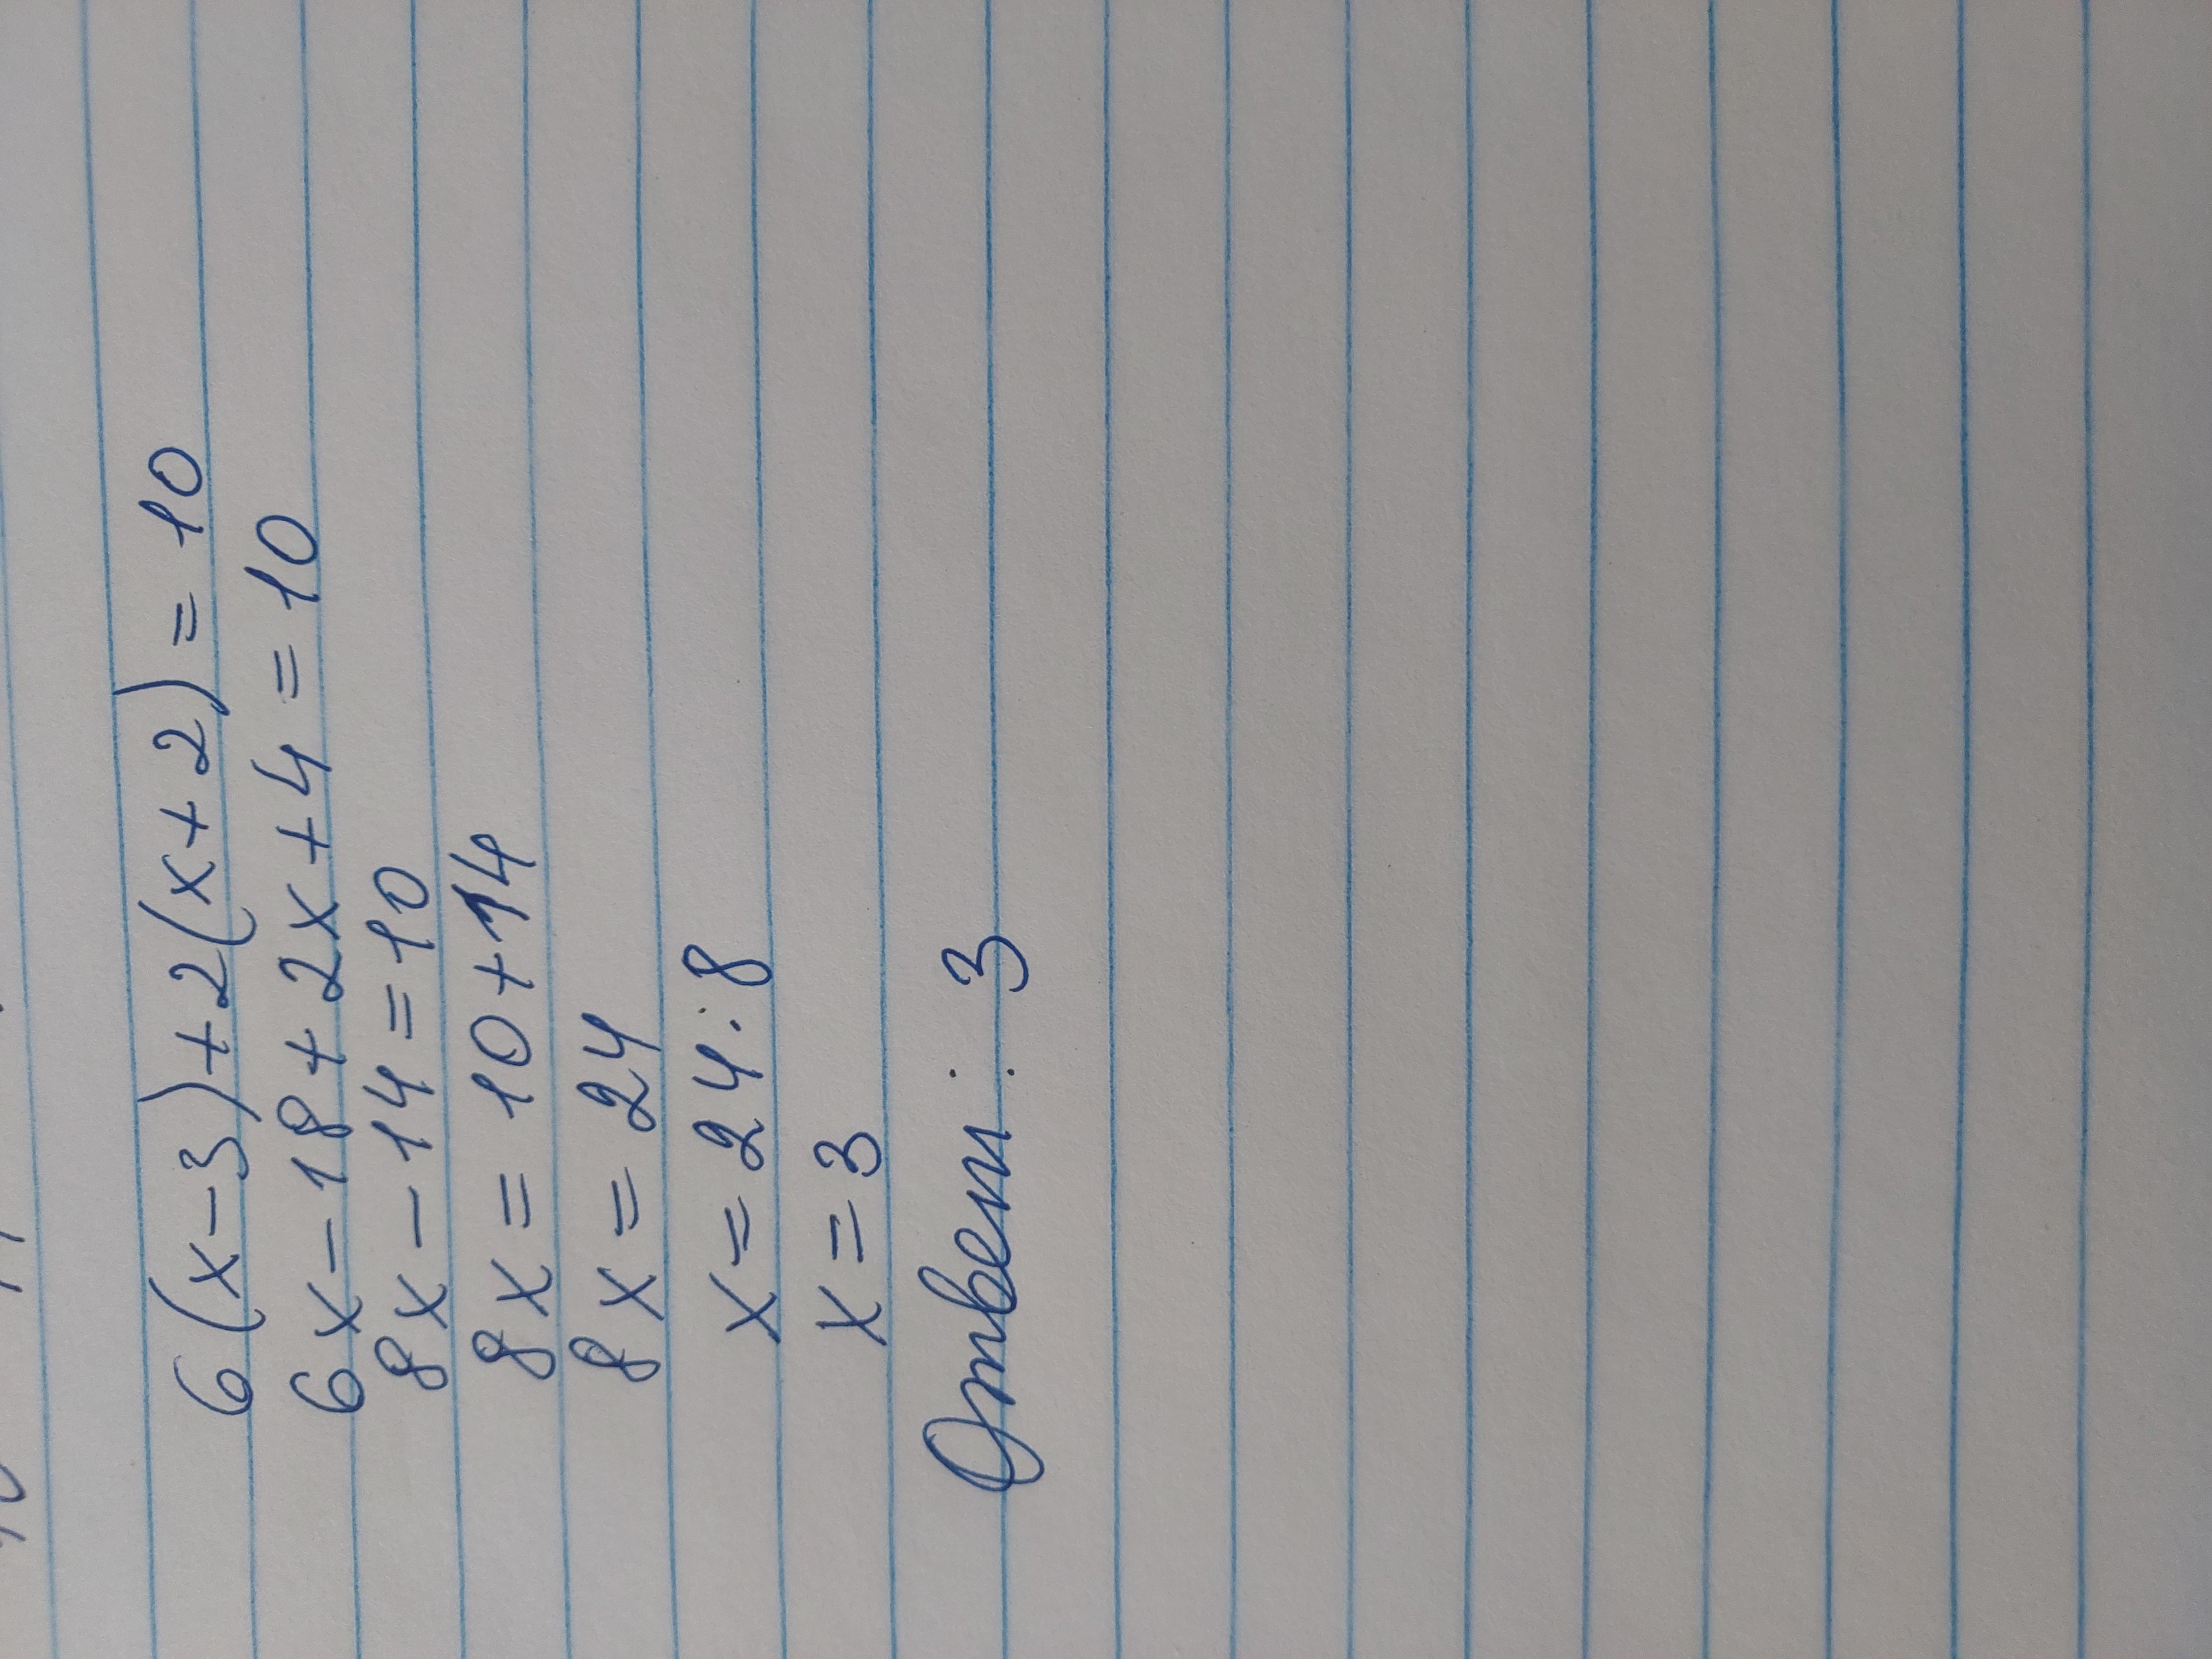 6(x-3)+2(x+2)=10
6x-18+2x+4=10
8x-14=10
8x=10+14
8x=24
x=24:8
x=3
Ответ: 3